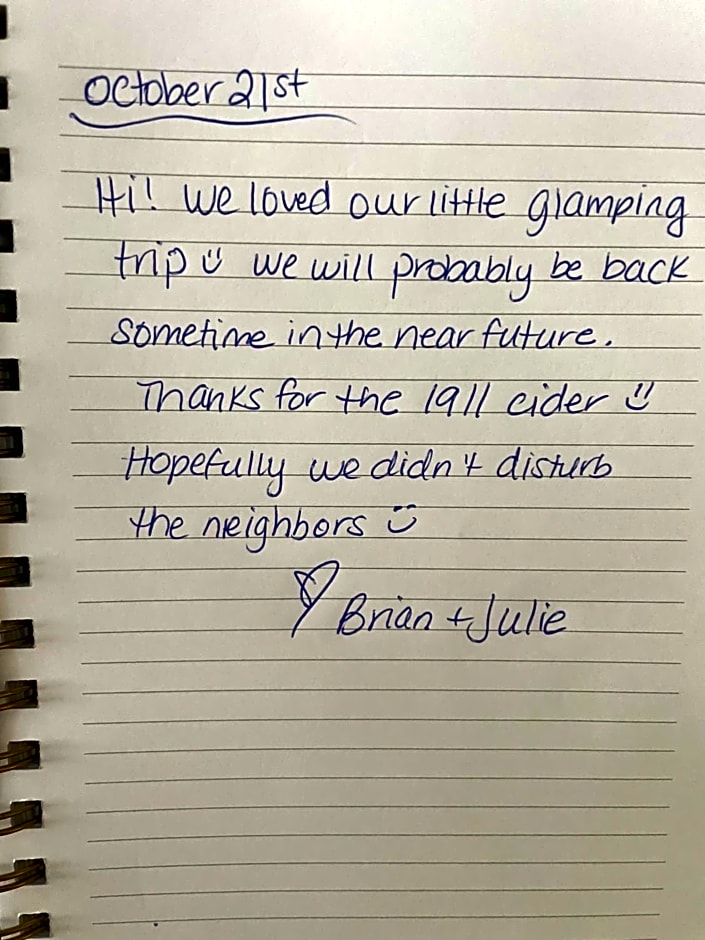 October 21st
Hi! We loved our little glamping
trip :) we will probably be back
sometime in the near future.
Thanks for the 1911 cider :)
Hopefully we didn't disturb
the neighbors :)
♡ Brian + Julie